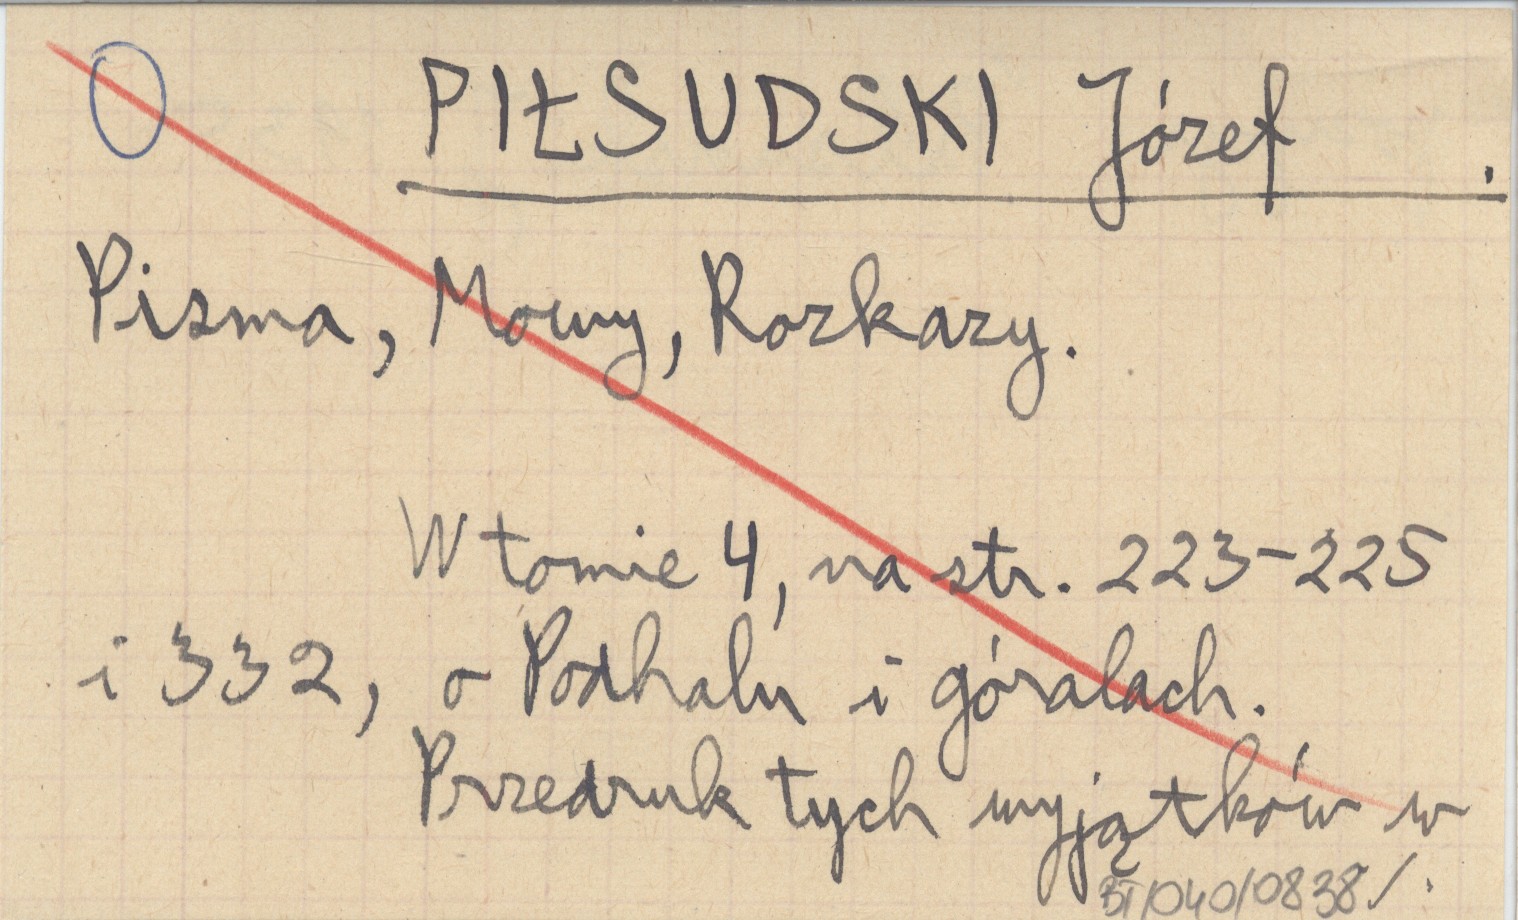 PIŁSUDSKI Józef .
Pisma, Mowy, Rozkazy.
W tomie 4, na str. 223-225
i 332, o Podhalu i góralach.
Przedruk tych wyjątków w
BT/040/0838/.